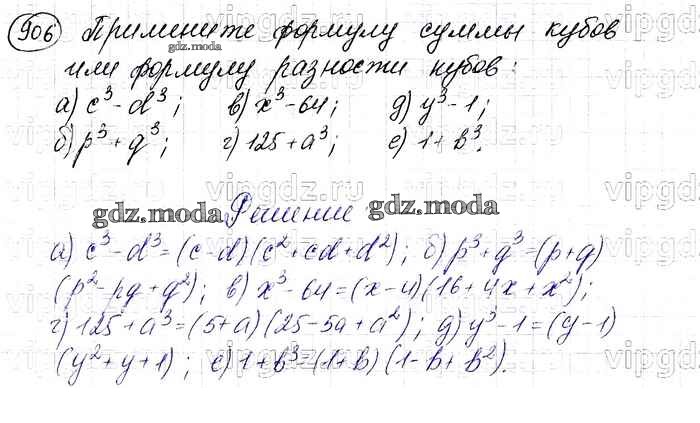 906 Примените формулу суммы кубов
gdz.moda
или формулу разности кубов:
а) c³-d³; в) x³-64; д) y³-1;
б) p³+q³; г) 125+a³; е) 1+b³.
gdz.moda Решение gdz.moda
а) c³-d³=(c-d)(c²+cd+d²); б) p³+q³=(p+q)
(p²-pq+q²); в) x³-64=(x-4)(16+4x+x²);
г) 125+a³=(5+a)(25-5a+a²); д) y³-1=(y-1)
(y²+y+1); е) 1+b³=(1+b)(1-b+b²).
vipgdz.ru